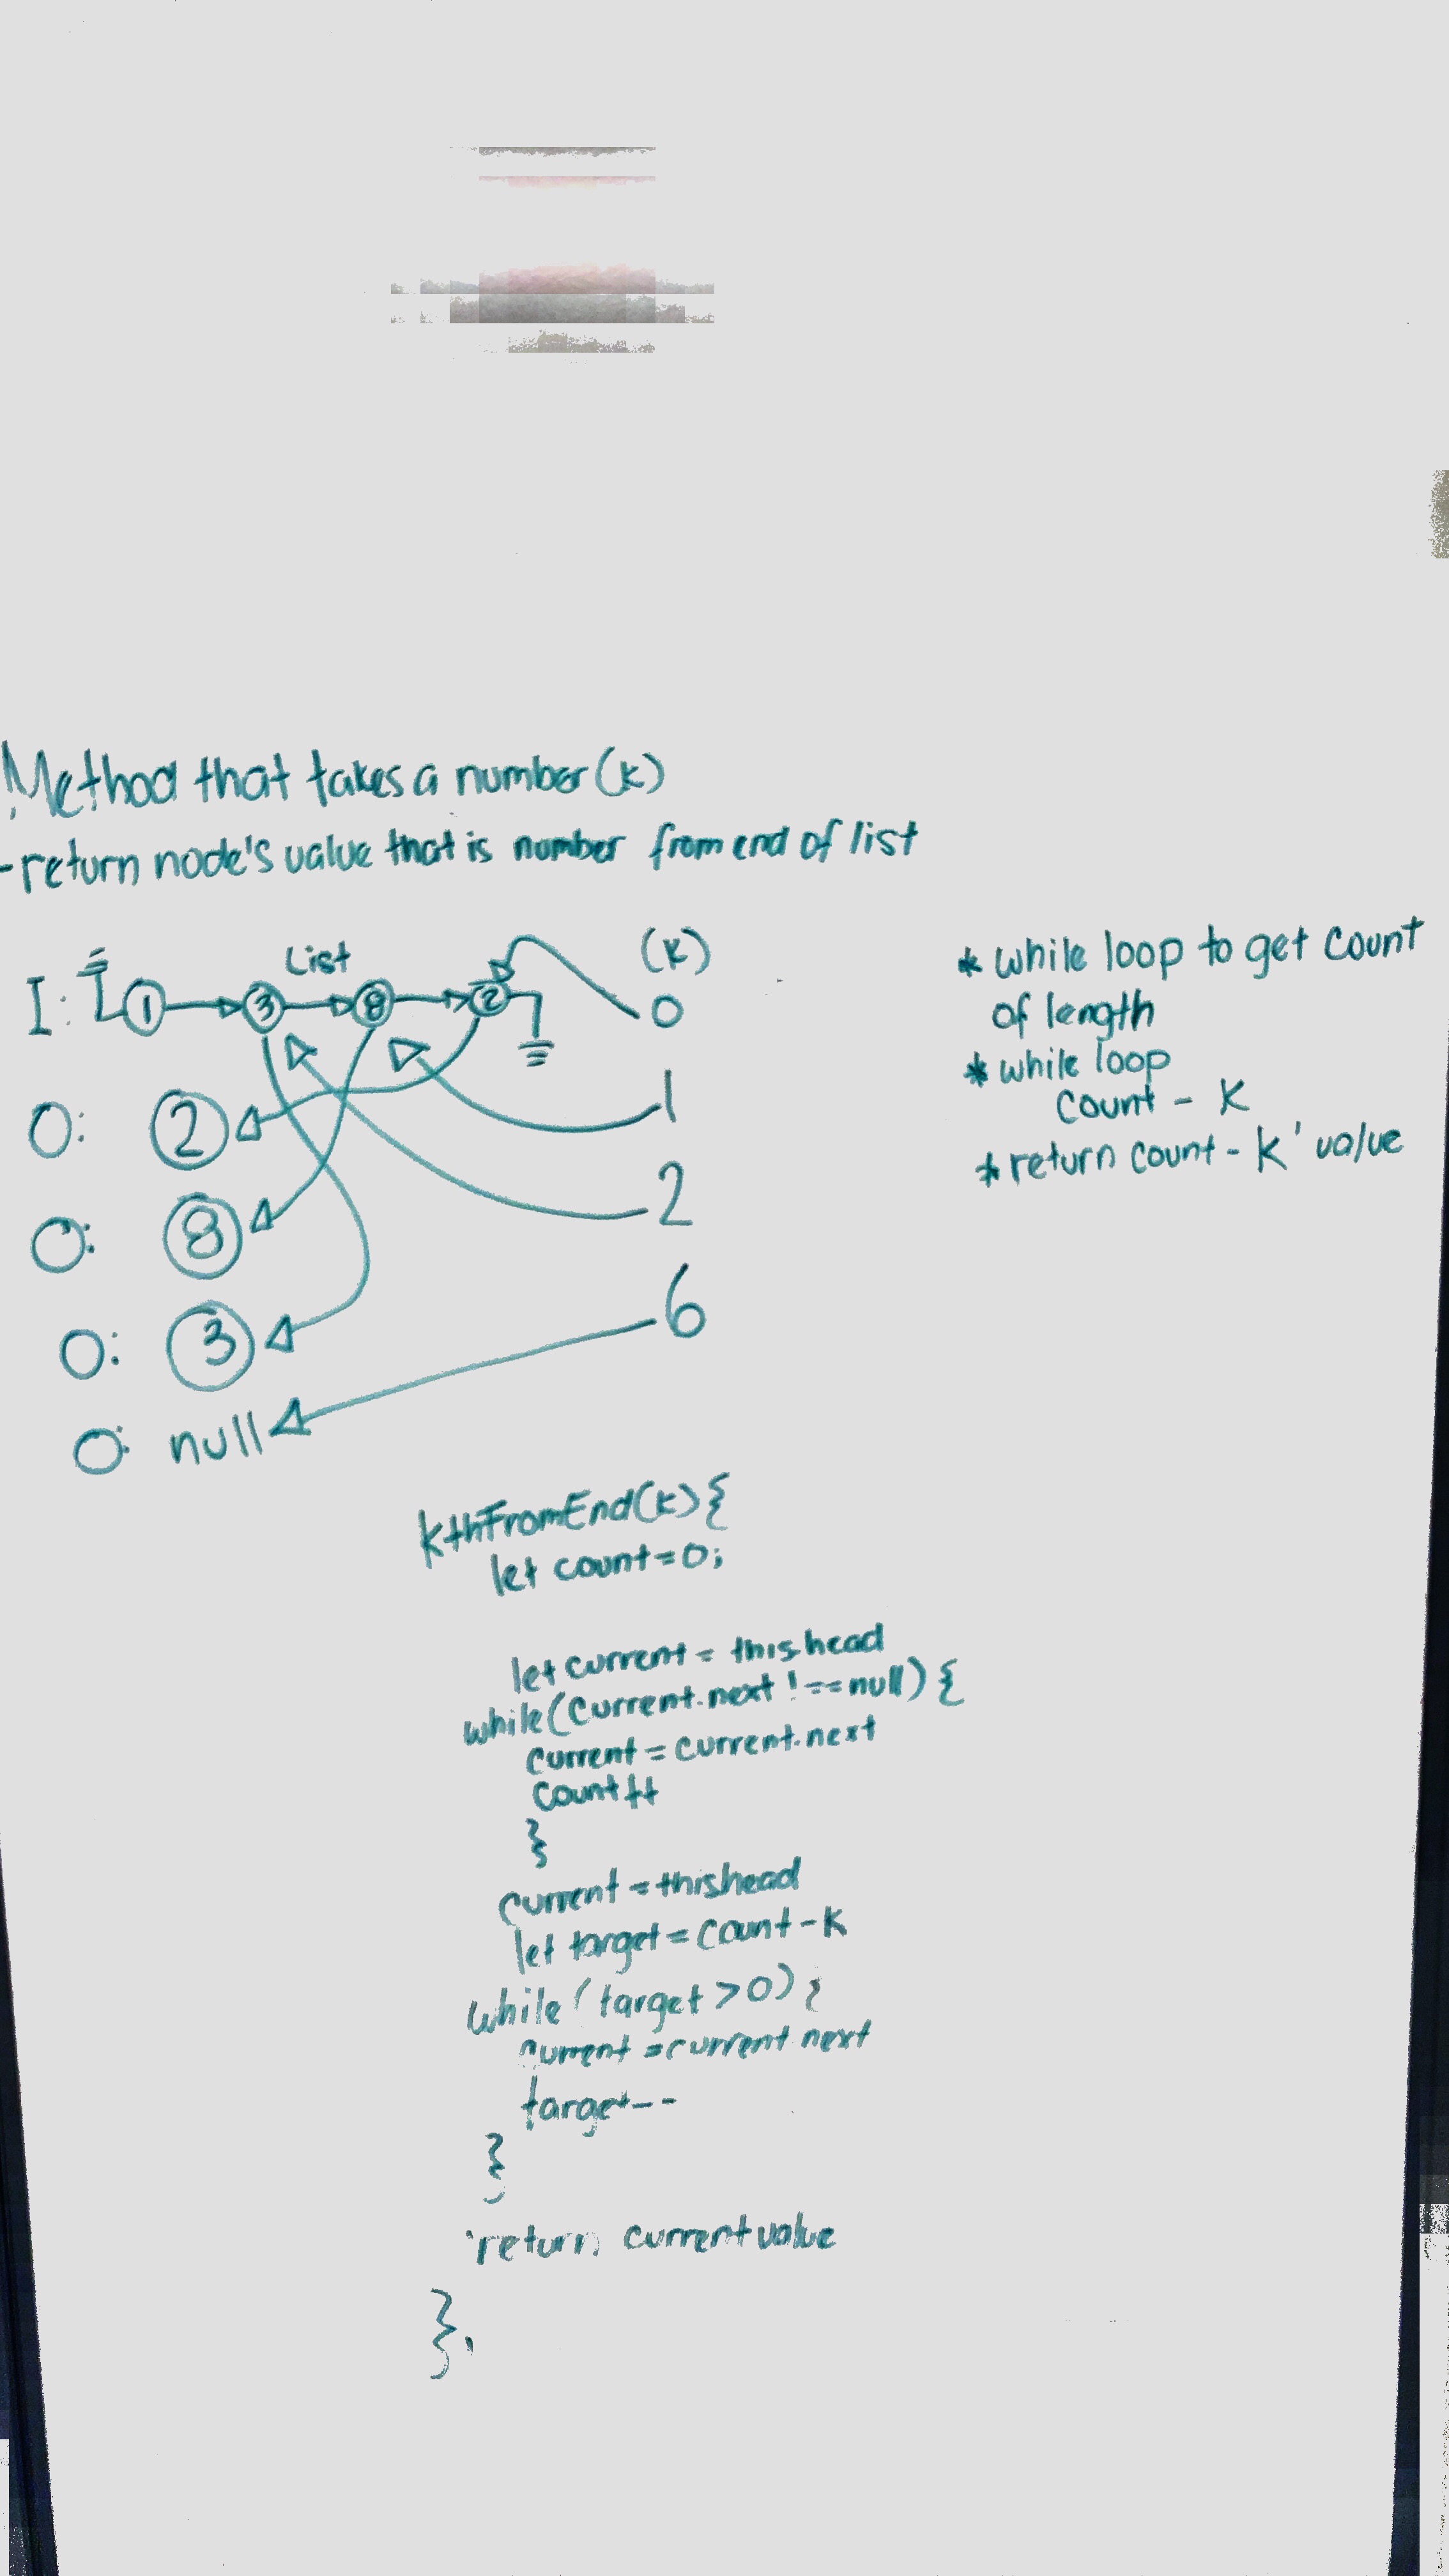 Method that takes a number (k)
- return node's value that is number from end of list
List (k)
I: 1 3 8 2 0
O: 2 1
O: 8 2
O: 3 6
O: null
* while loop to get count
of length
* while loop
count - k
* return count - k' value
kthFromEnd(k){
let count=0;
let current = this.head
while(current.next !== null) {
current = current.next
count++
}
current = this.head
let target = count - k
while (target > 0) {
current = current.next
target--
}
return current value
}